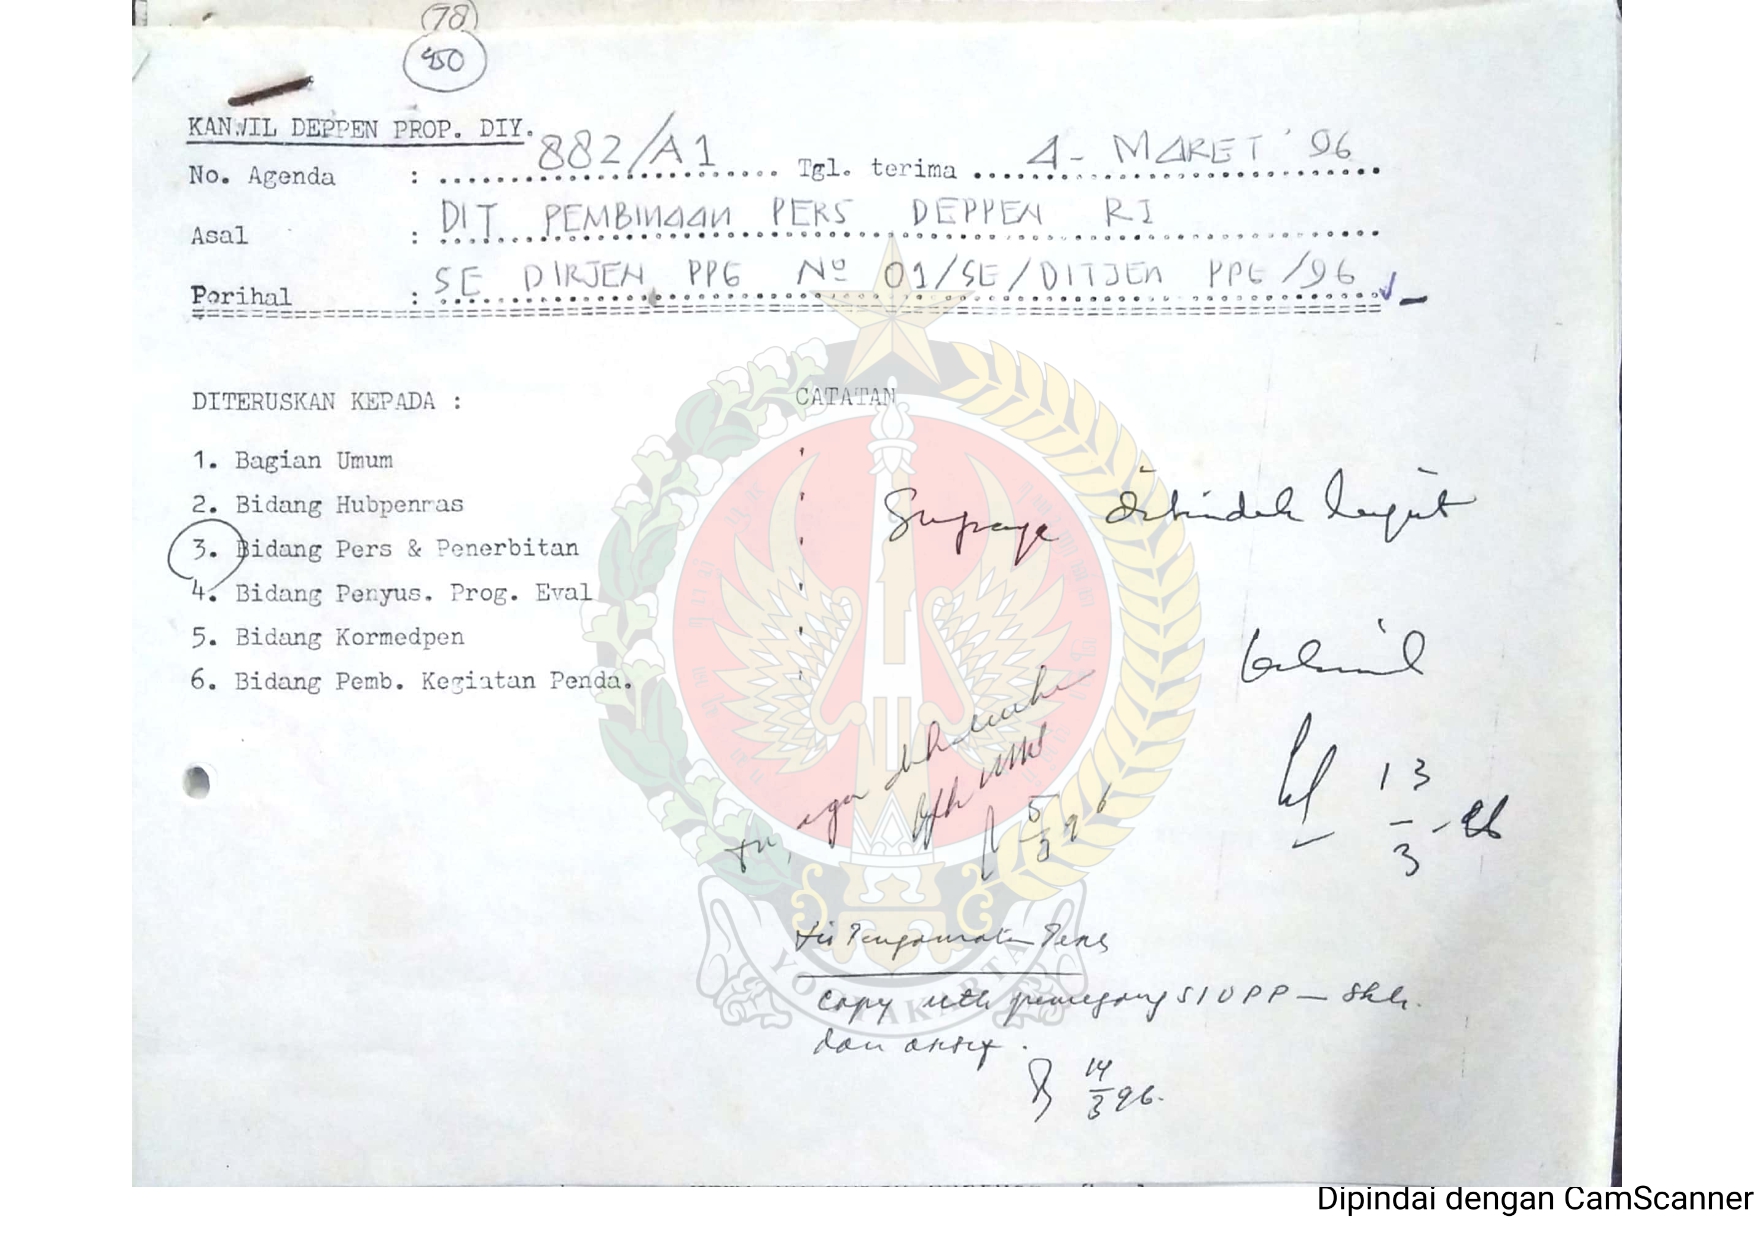 (78)
450
KANWIL DEPPEN PROP. DIY.
No. Agenda : 882/A1 Tgl. terima 4 - MARET '96
Asal : DIT PEMBINAAN PERS DEPPEN RI
Perihal : SE DIRJEN PPG Nº 01/SE/DITJEN PPG/96
DITERUSKAN KEPADA : CATATAN
1. Bagian Umum
2. Bidang Hubpenmas
3. Bidang Pers & Penerbitan
4. Bidang Penyus. Prog. Eval
5. Bidang Kormedpen
6. Bidang Pemb. Kegiatan Penda.
Supaya ditindak lanjuti
13/3-96
agar
5/3 96
Pengamatan Pers
copy utk pemegang SIUPP - Skh.
dan arsip.
14/3 96.
YOGYAKARTA
Dipindai dengan CamScanner